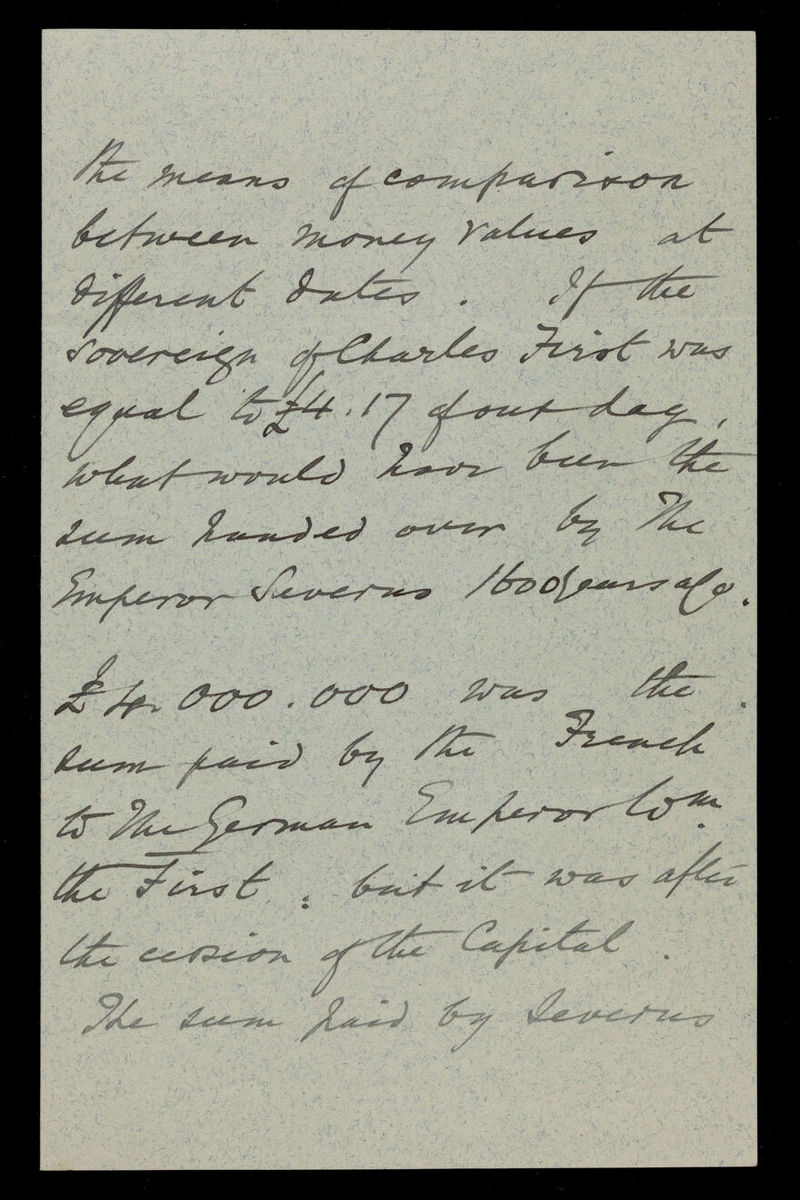 the means of comparison
between money values at
different dates. If the
sovereign of Charles First was
equal to £4.17 of our day,
what would have been the
sum handed over by the
Emperor Severus 1600 years ago.
£4.000.000 was the
sum paid by the French
to the German Emperor Wm.
the First: but it was after
the cession of the Capital.
The sum paid by Severus